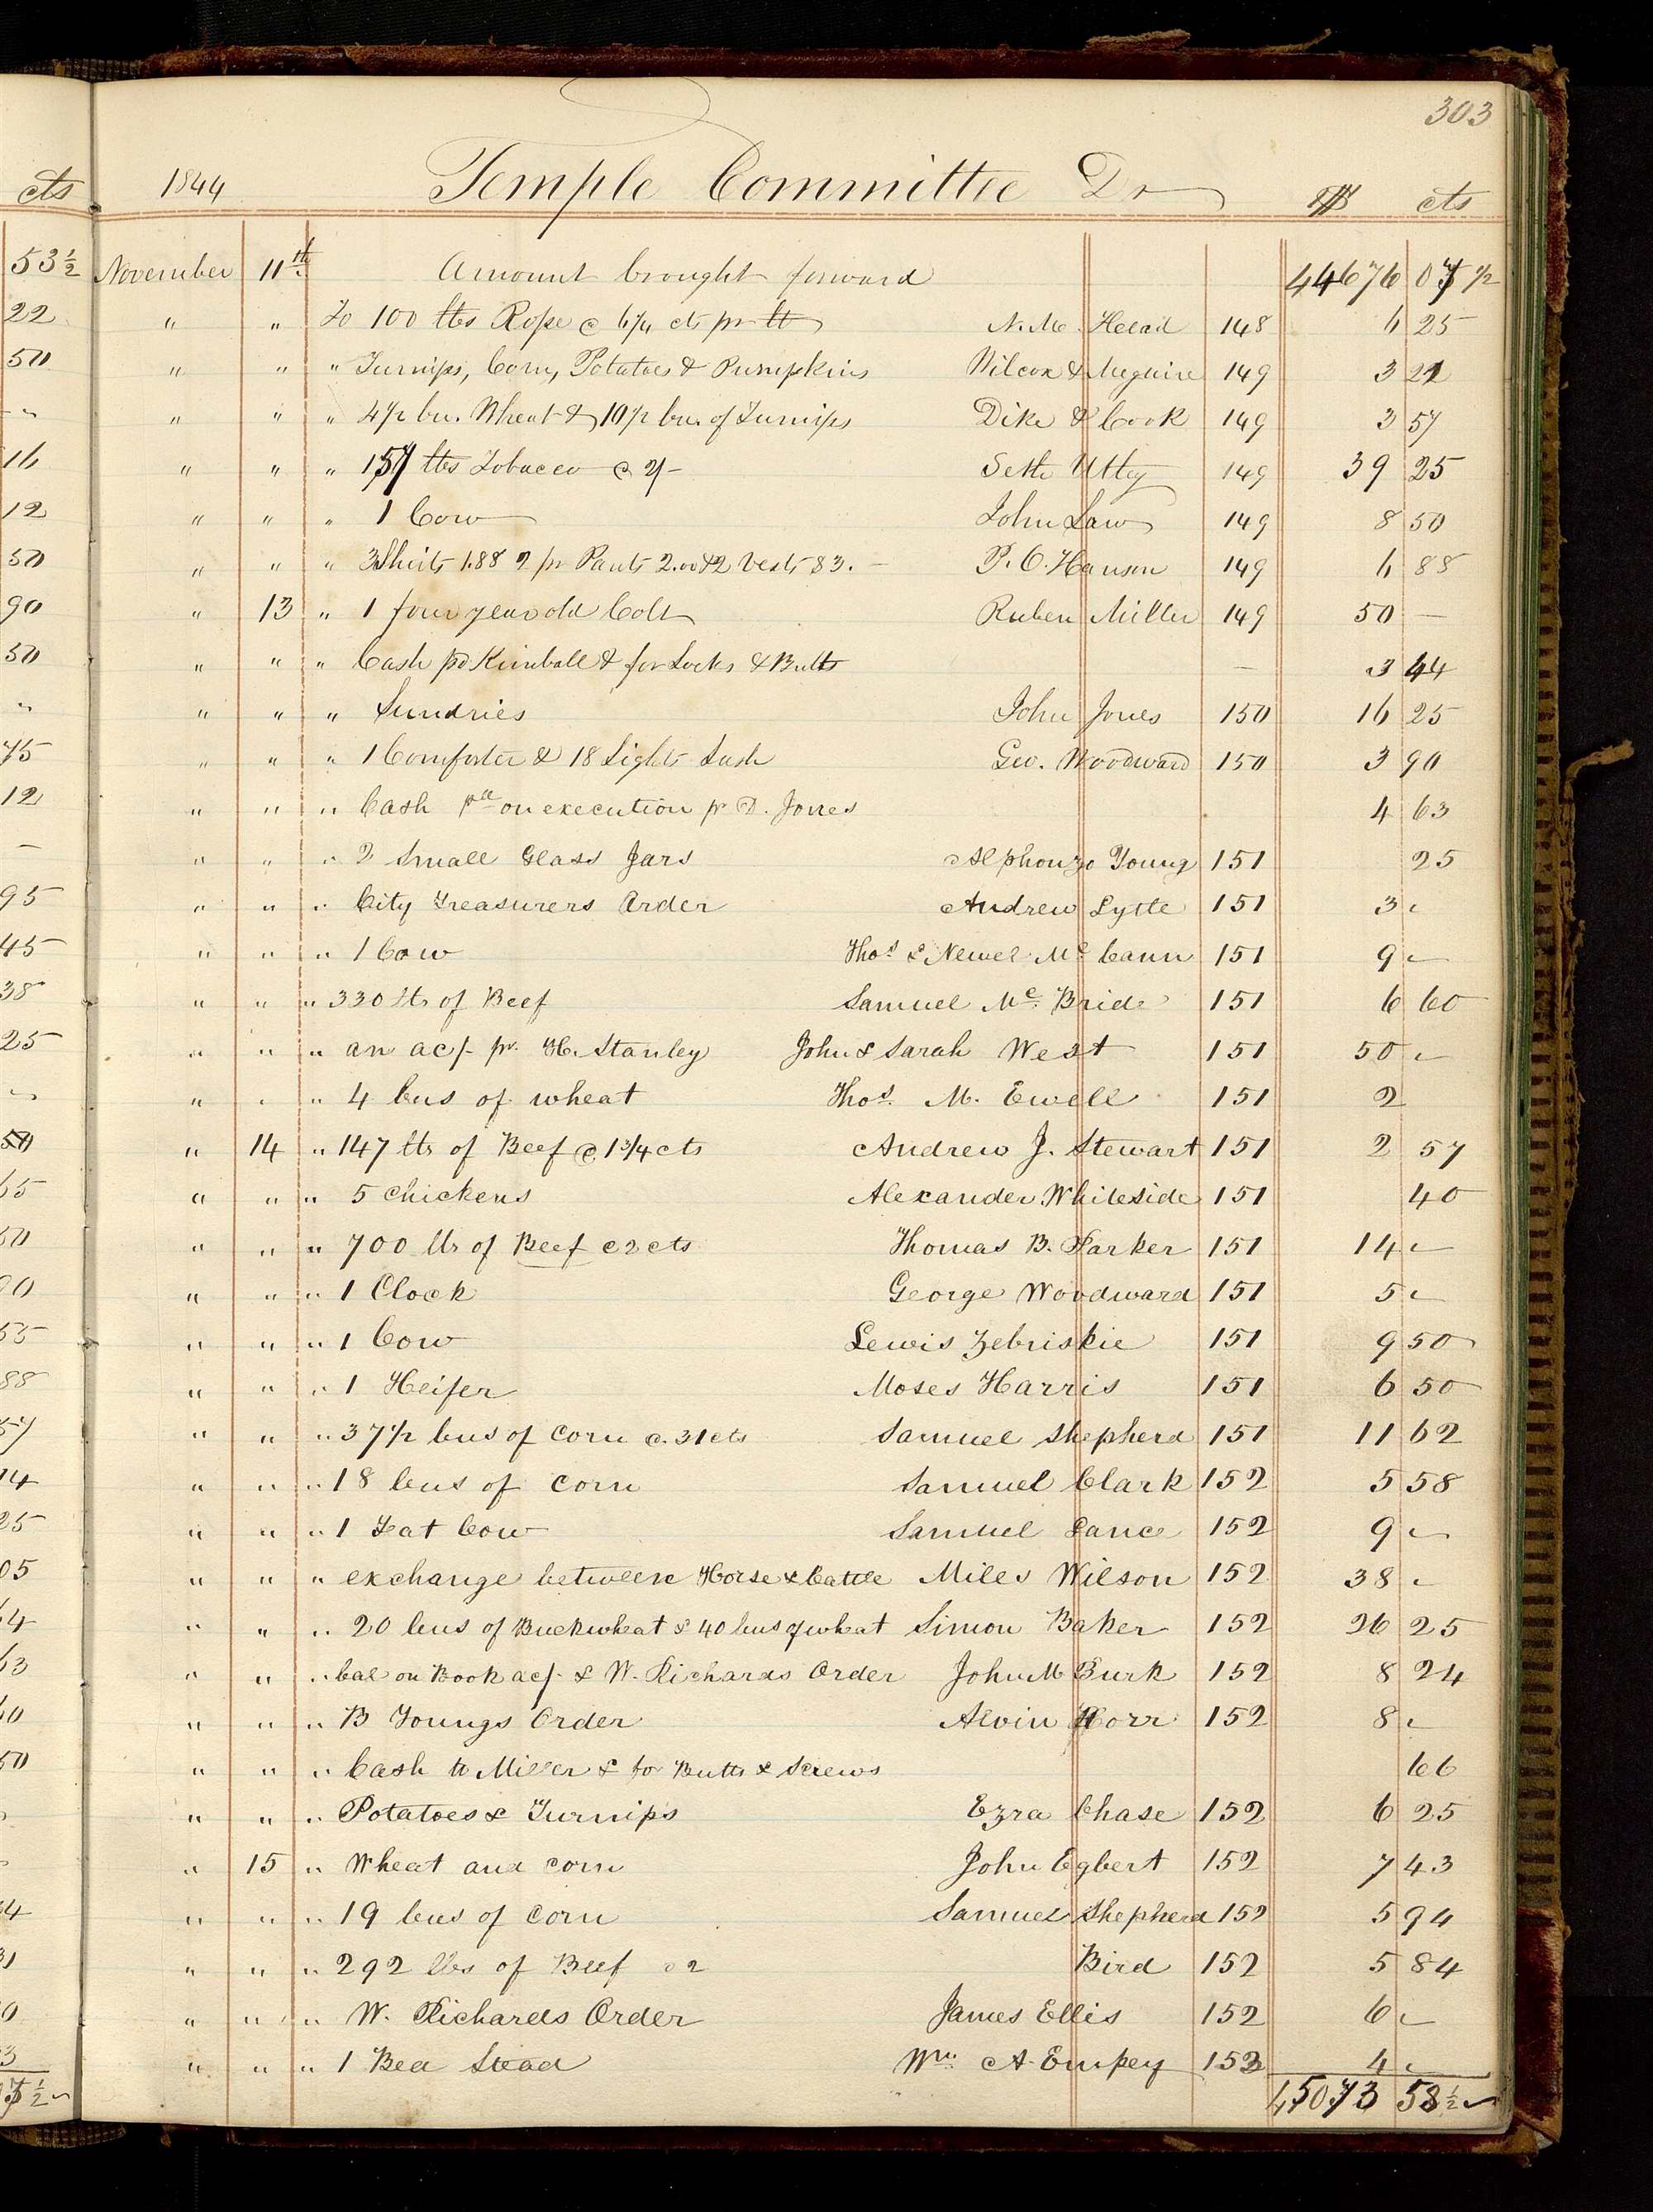 303
cts 1844 Temple Committee Dr $ cts
53½ November 11th. Amount brought forward 44676 07½
22 " " To 100 lbs Rope @ 6¼ cts pr lb N. M. Head 148 6 25
50 " " " Turnips, Corn, Potatoes & Pumpkins Wilcox & Meguire 149 3 21
" " " 4½ bu. Wheat & 10½ bu. of Turnips Dike & Cook 149 3 57
16 " " " 157 lbs Tobacco @ 2/- Seth Utley 149 39 25
12 " " " 1 Cow John Law 149 8 50
50 " " " 3 Shirts 1.88 2 pr Pants 2.00 & 2 Vests 83. — P. O. Hanson 149 6 88
90 " 13 " 1 four year old Colt Ruben Miller 149 50 —
50 " " " Cash pd Kimball & for Locks & Butts — 3 44
" " " " Sundries John Jones 150 16 25
75 " " " 1 Comforter & 18 Lights Sash Geo. Woodward 150 3 90
12 " " " Cash pd on execution pr D. Jones 4 63
— " " " 2 Small Glass Jars Alphonzo Young 151 25
95 " " " City Treasurers Order Andrew Lytle 151 3 "
45 " " " 1 Cow Thos. & Newel Mc Cann 151 9 "
38 " " " 330 lbs of Beef Samuel Mc. Bride 151 6 60
25 " " " an ac/- pr. H. Stanley John & Sarah West 151 50 "
" " " " 4 bus of wheat Thos. M. Ewell 151 2
50 " 14 " 147 lbs of Beef @ 1¾ cts Andrew J. Stewart 151 2 57
65 " " " 5 chickens Alexander Whiteside 151 40
50 " " " 700 lbs of Beef @ 2 cts Thomas B. Parker 151 14 "
00 " " " 1 Clock George Woodward 151 5 "
55 " " " 1 Cow Lewis Zebriskie 151 9 50
88 " " " 1 Heifer Moses Harris 151 6 50
57 " " " 37½ bus of corn @. 31 cts Samuel Shepherd 151 11 62
14 " " " 18 bus of corn Samuel Clark 152 5 58
25 " " " 1 Fat Cow Samuel Lance 152 9 "
05 " " " exchange between Horse & Cattle Miles Wilson 152 38 "
64 " " " 20 bus of Buckwheat & 40 bus of wheat Simon Baker 152 26 25
63 " " " bal on Book ac/- & W. Richards Order John M Burk 152 8 24
40 " " " B Youngs Order Alvin Horr 152 8 "
50 " " " Cash to Miller & for Butts & Screws 66
" " " Potatoes & Turnips Ezra Chase 152 6 25
" 15 " Wheat and corn John Egbert 152 7 43
34 " " " 19 bus of corn Samuel Shepherd 152 5 94
31 " " " 292 lbs of Beef @ 2 Bird 152 5 84
0 " " " W. Richards Order James Ellis 152 6 "
3 " " " 1 Bed Stead Wm. A. Empey 153 4 "
7½ 45073 58½